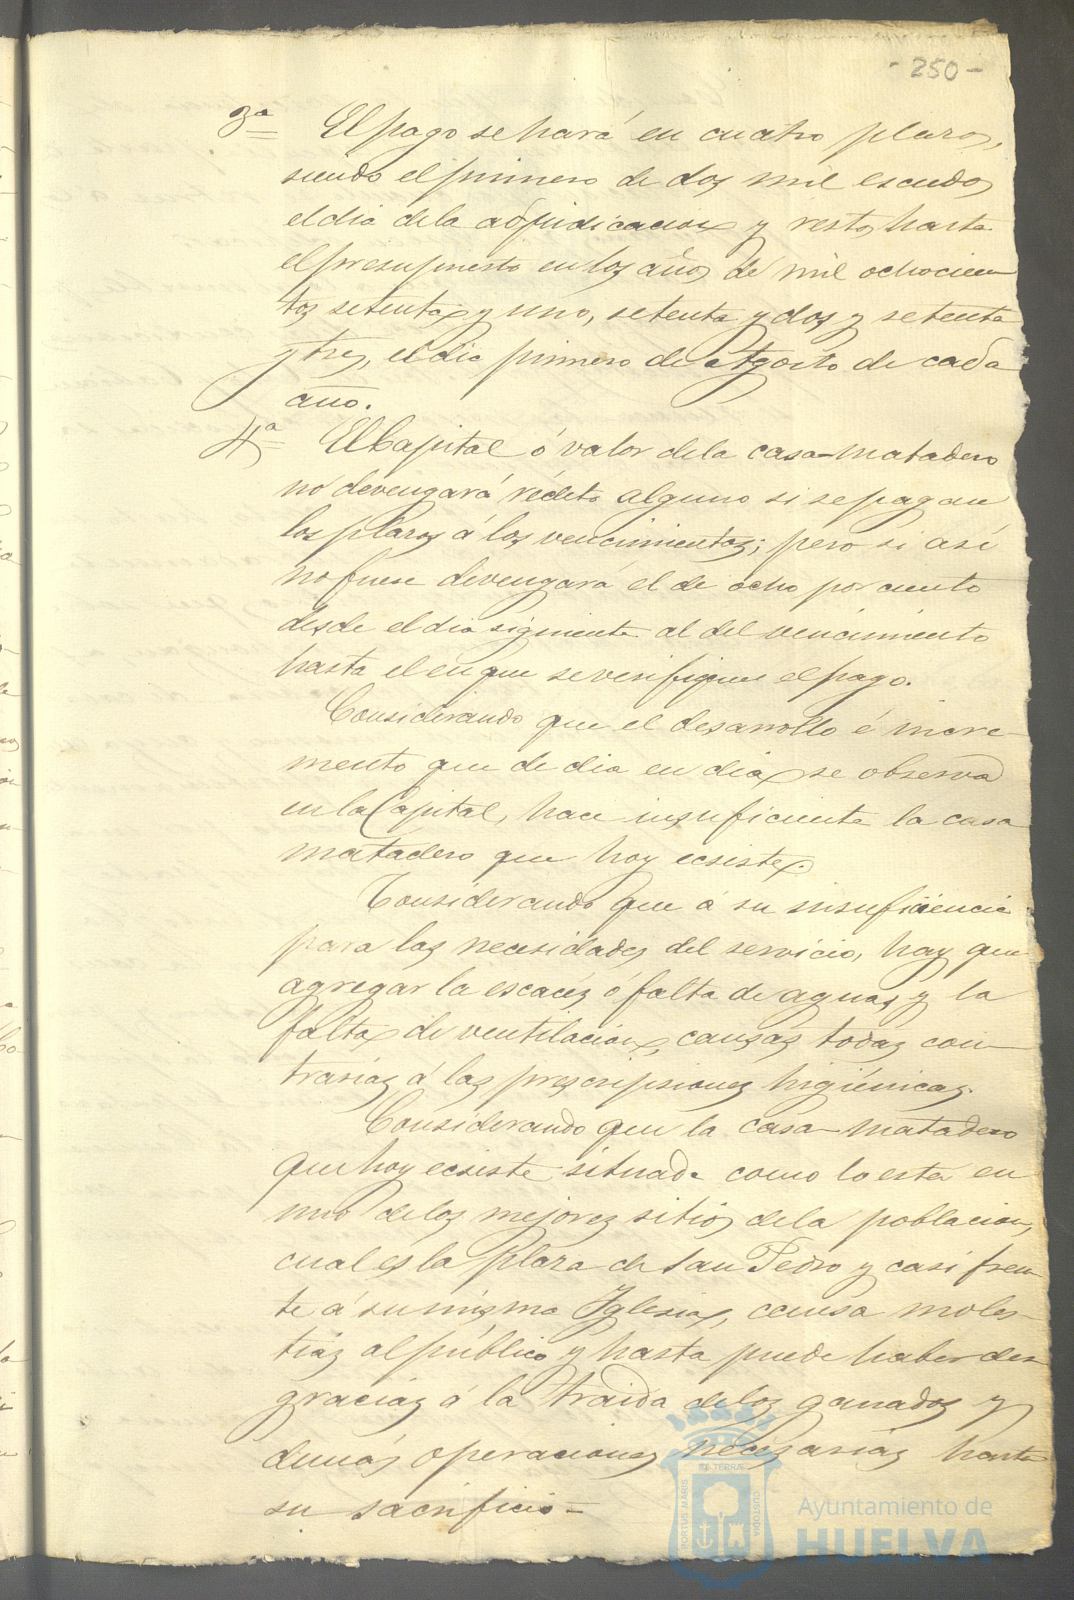 - 250 -
3ª El pago se hará en cuatro plazos,
siendo el primero de dos mil escudos
el dia de la adjudicacion y resto hasta
el presupuesto en los años de mil ochocien
tos setenta y uno, setenta y dos y setenta
y tres, el dia primero de Agosto de cada
año.
4ª El Capital ó valor de la casa-matadero
no devengará rédito alguno si se pagan
los plazos á los vencimientos; pero si asi
no fuese devengará el de ocho por ciento
desde el dia siguiente al del vencimiento
hasta el en que se verifique el pago.
Considerando que el desarrollo é incre-
mento que de dia en dia se observa
en la Capital, hace insuficiente la casa
matadero que hoy ecsiste.
Considerando que á su insuficiencia
para las necesidades del servicio, hay que
agregar la escacez ó falta de aguas y la
falta de ventilacion, causas todas con-
trarias á las prescripsiones higiénicas.
Considerando que la casa-matadero
que hoy ecsiste situada como lo esta en
uno de los mejores sitios de la poblacion,
cual es la plaza de San Pedro y casi fren-
te á su misma Iglesia, causa moles-
tias al público y hasta puede haber des-
gracias á la traida de los ganados y
demás operaciones necesarias hasta
su sacrificio=
PORTUS MARIS ET TERRA CUSTODIA
Ayuntamiento de
HUELVA